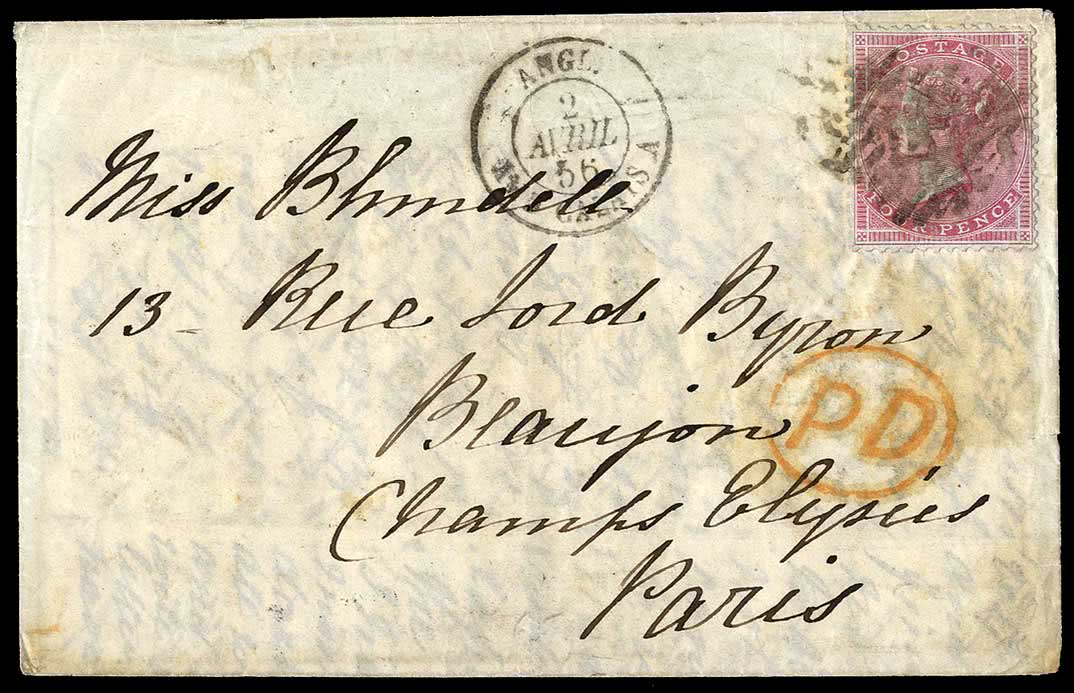 ANGL.
2
AVRIL
56
CALAIS A
POSTAGE
FOUR PENCE
Miss Blundell
13 - Rue Lord Byron
Beaujon
PD
Champs Elysées
Paris